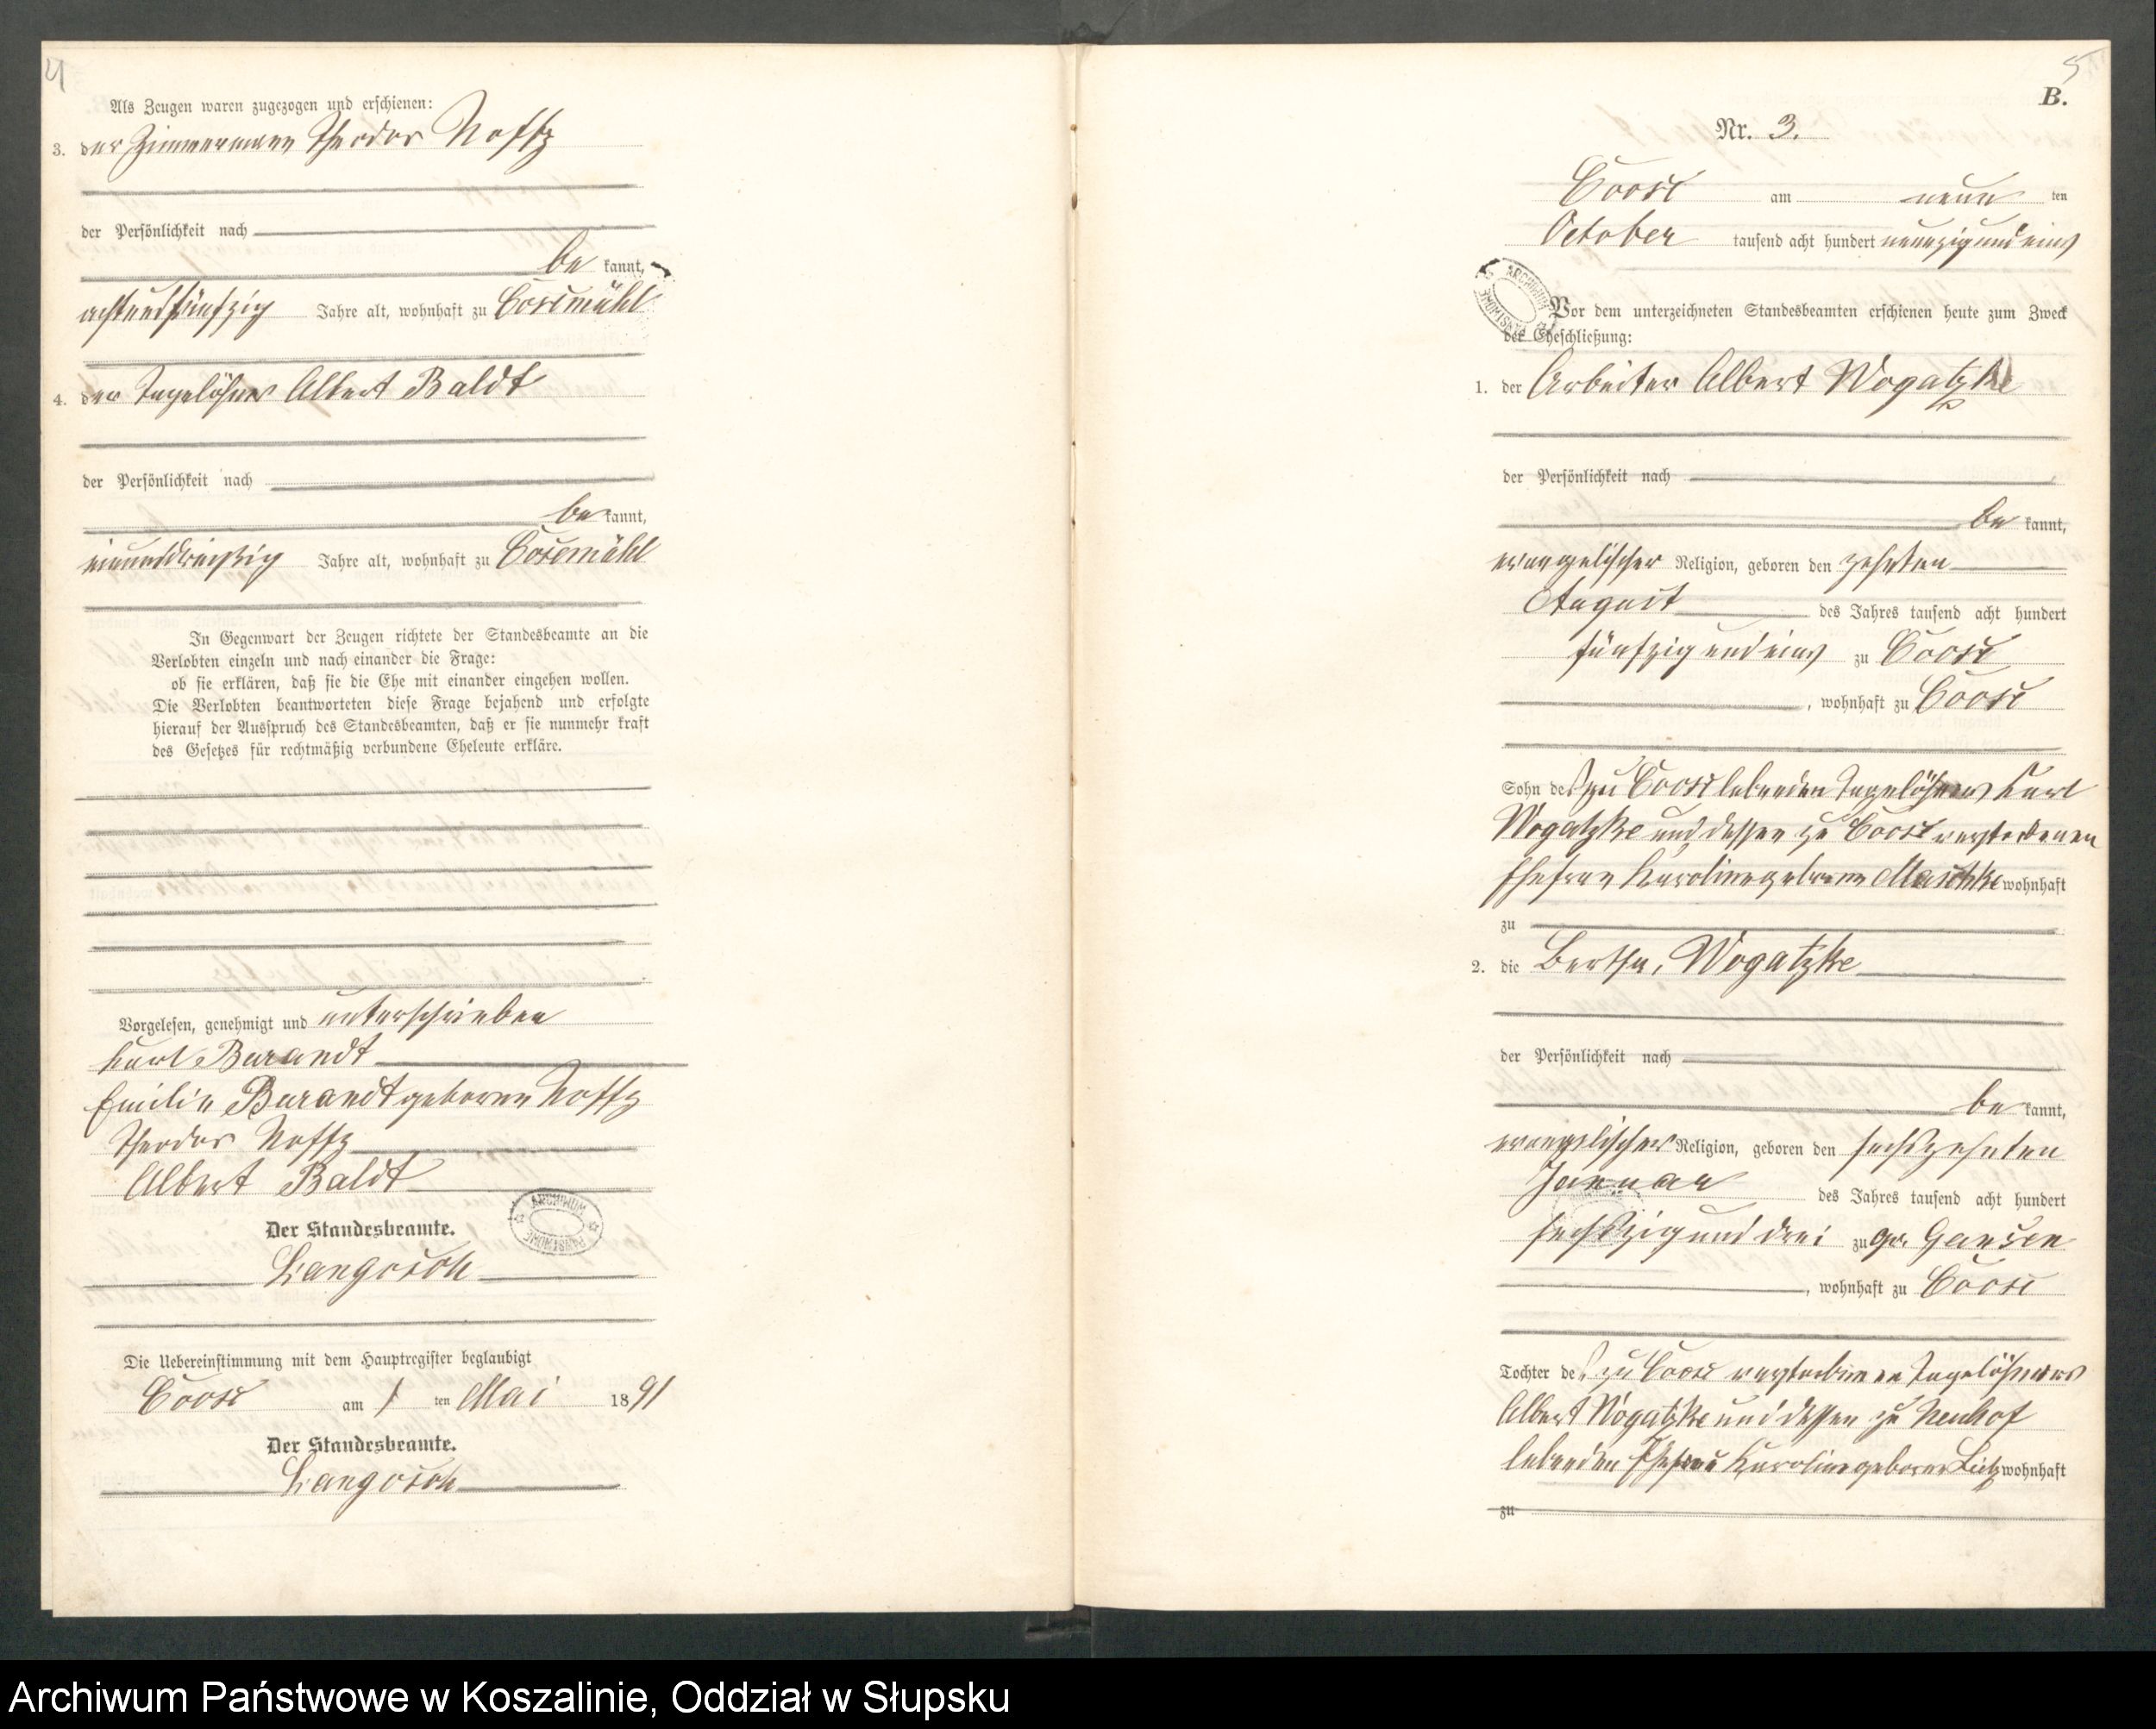 4
Als Zeugen waren zugezogen und erschienen:
3. der Zimmermann Theodor Noffz
der Persönlichkeit nach
be kannt,
achtundfünfzig Jahre alt, wohnhaft zu Coosemühl
4. der Tagelöhner Albert Baldt
der Persönlichkeit nach
be kannt,
einunddreißig Jahre alt, wohnhaft zu Coosemühl
In Gegenwart der Zeugen richtete der Standesbeamte an die
Verlobten einzeln und nach einander die Frage:
ob sie erklären, daß sie die Ehe mit einander eingehen wollen.
Die Verlobten beantworteten diese Frage bejahend und erfolgte
hierauf der Ausspruch des Standesbeamten, daß er sie nunmehr kraft
des Gesetzes für rechtmäßig verbundene Eheleute erkläre.
Vorgelesen, genehmigt und unterschrieben
Karl Burandt
Emilie Burandt geborene Noffz
Theodor Noffz
Albert Baldt
ARCHIWUM PAŃSTWOWE
Der Standesbeamte.
Langosch
Die Uebereinstimmung mit dem Hauptregister beglaubigt
Coose am 1 ten Mai 1891
Der Standesbeamte.
Langosch
5
B.
Nr. 3.
Coose am neun ten
October tausend acht hundert neunzig und eins
ARCHIWUM PAŃSTWOWE
Vor dem unterzeichneten Standesbeamten erschienen heute zum Zweck
der Eheschließung:
1. der Arbeiter Albert Wogatzke
der Persönlichkeit nach
be kannt,
evangelischer Religion, geboren den zehnten
August des Jahres tausend acht hundert
fünfzig und eins zu Coose
, wohnhaft zu Coose
Sohn des zu Coose lebenden Tagelöhners Karl
Wogatzke und dessen zu Coose verstorbenen
Ehefrau Karoline geborene Maschke wohnhaft
zu
2. die Bertha, Wogatzke
der Persönlichkeit nach
be kannt,
evangelischer Religion, geboren den sechszehnten
Januar des Jahres tausend acht hundert
sechszig und drei zu Gr. Gansen
, wohnhaft zu Coose
Tochter des zu Coose verstorbenen Tagelöhners
Albert Wogatzke und dessen zu Neuhof
lebenden Ehefrau Karoline geborene wohnhaft
zu
Archiwum Państwowe w Koszalinie, Oddział w Słupsku